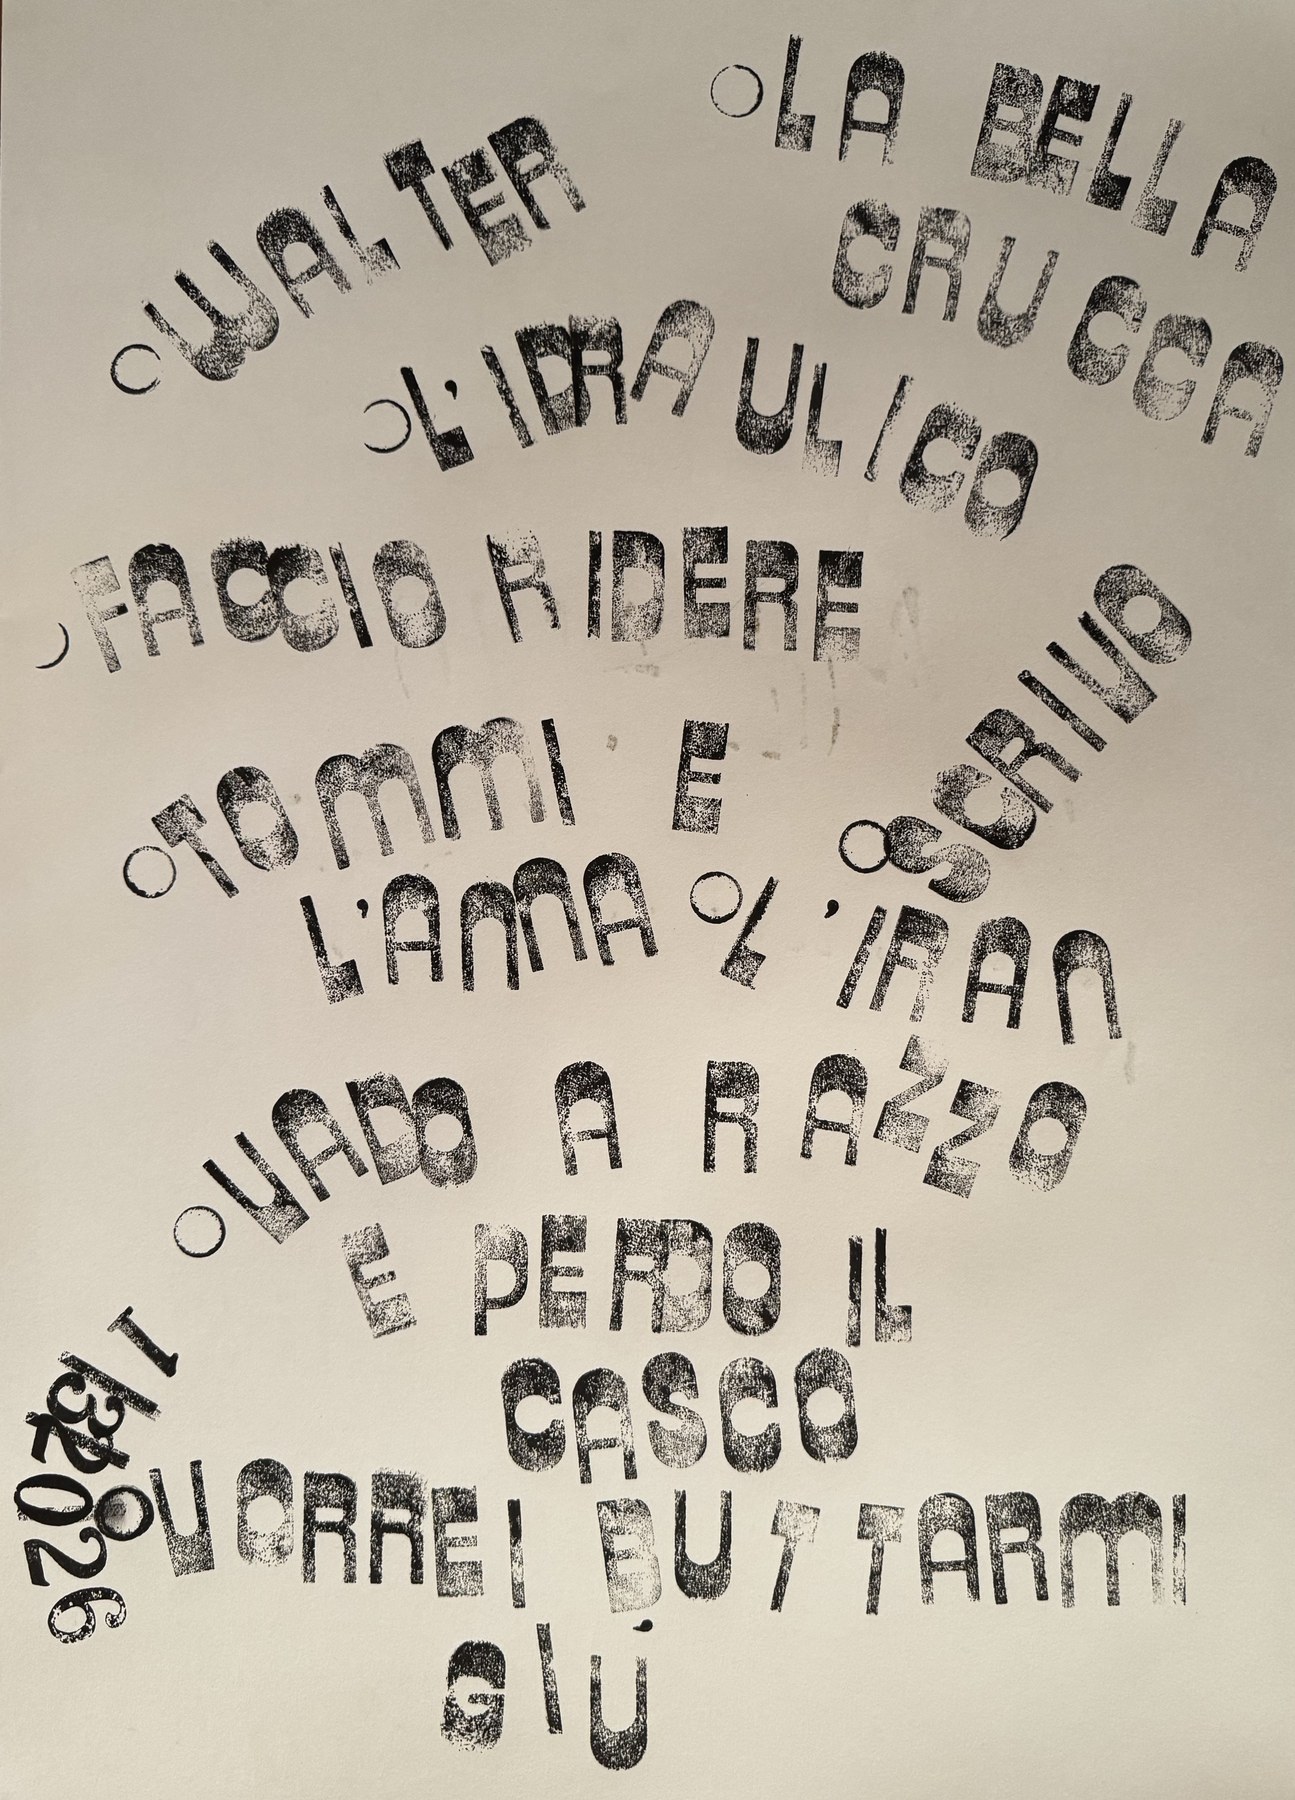 ○ LA BELLA
CRUCCA
○ WALTER
○ L'IDRAULICO
○ FACCIO RIDERE
○ SCRIVO
○ TOMMI E
L'ANNA
○ L'IRAN
○ VADO A RAZZO
E PERDO IL
CASCO
○ VORREI BUTTARMI
GIÙ
2026